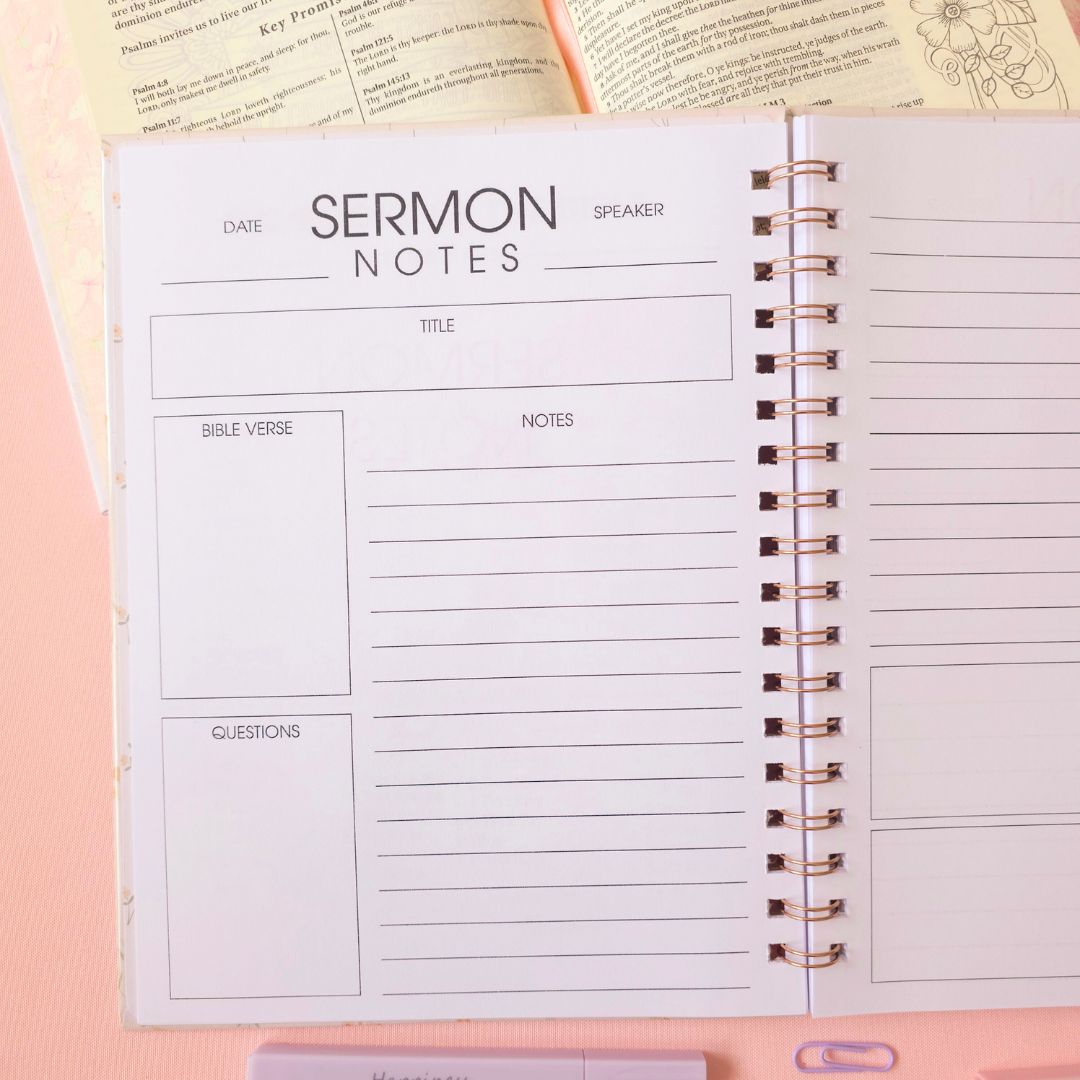 dominion endure
Psalms invites us to live our li
Key Promis
Psalm 4:8
I will both lay me down in peace, and sleep: for thou,
LORD, only makest me dwell in safety.
Psalm 11:7
righteous LORD loveth righteousness; his
behold the upright.
God is our refuge
trouble.
Psalm 121:5
The LORD is thy keeper: the LORD is thy shade upon thy
right hand.
Psalm 145:13
Thy kingdom is an everlasting kingdom, and thy
dominion endureth throughout all generations.
and of my
Then shall he
displeasure.
Yet have I set my king upon
I will declare the decree: the LORD ha
day have I begotten thee.
Ask of me, and I shall give thee the heathen for thine
uttermost parts of the earth for thy possession.
Thou shalt break them with a rod of iron; thou shalt dash them in pieces
a potter's vessel.
wise now therefore, O ye kings: be instructed, ye judges of the earth.
LORD with fear, and rejoice with trembling.
lest he be angry, and ye perish from the way, when his wrath
blessed are all they that put their trust in him.
rise up
DATE
SERMON
NOTES
SPEAKER
TITLE
BIBLE VERSE
NOTES
QUESTIONS
Happiness